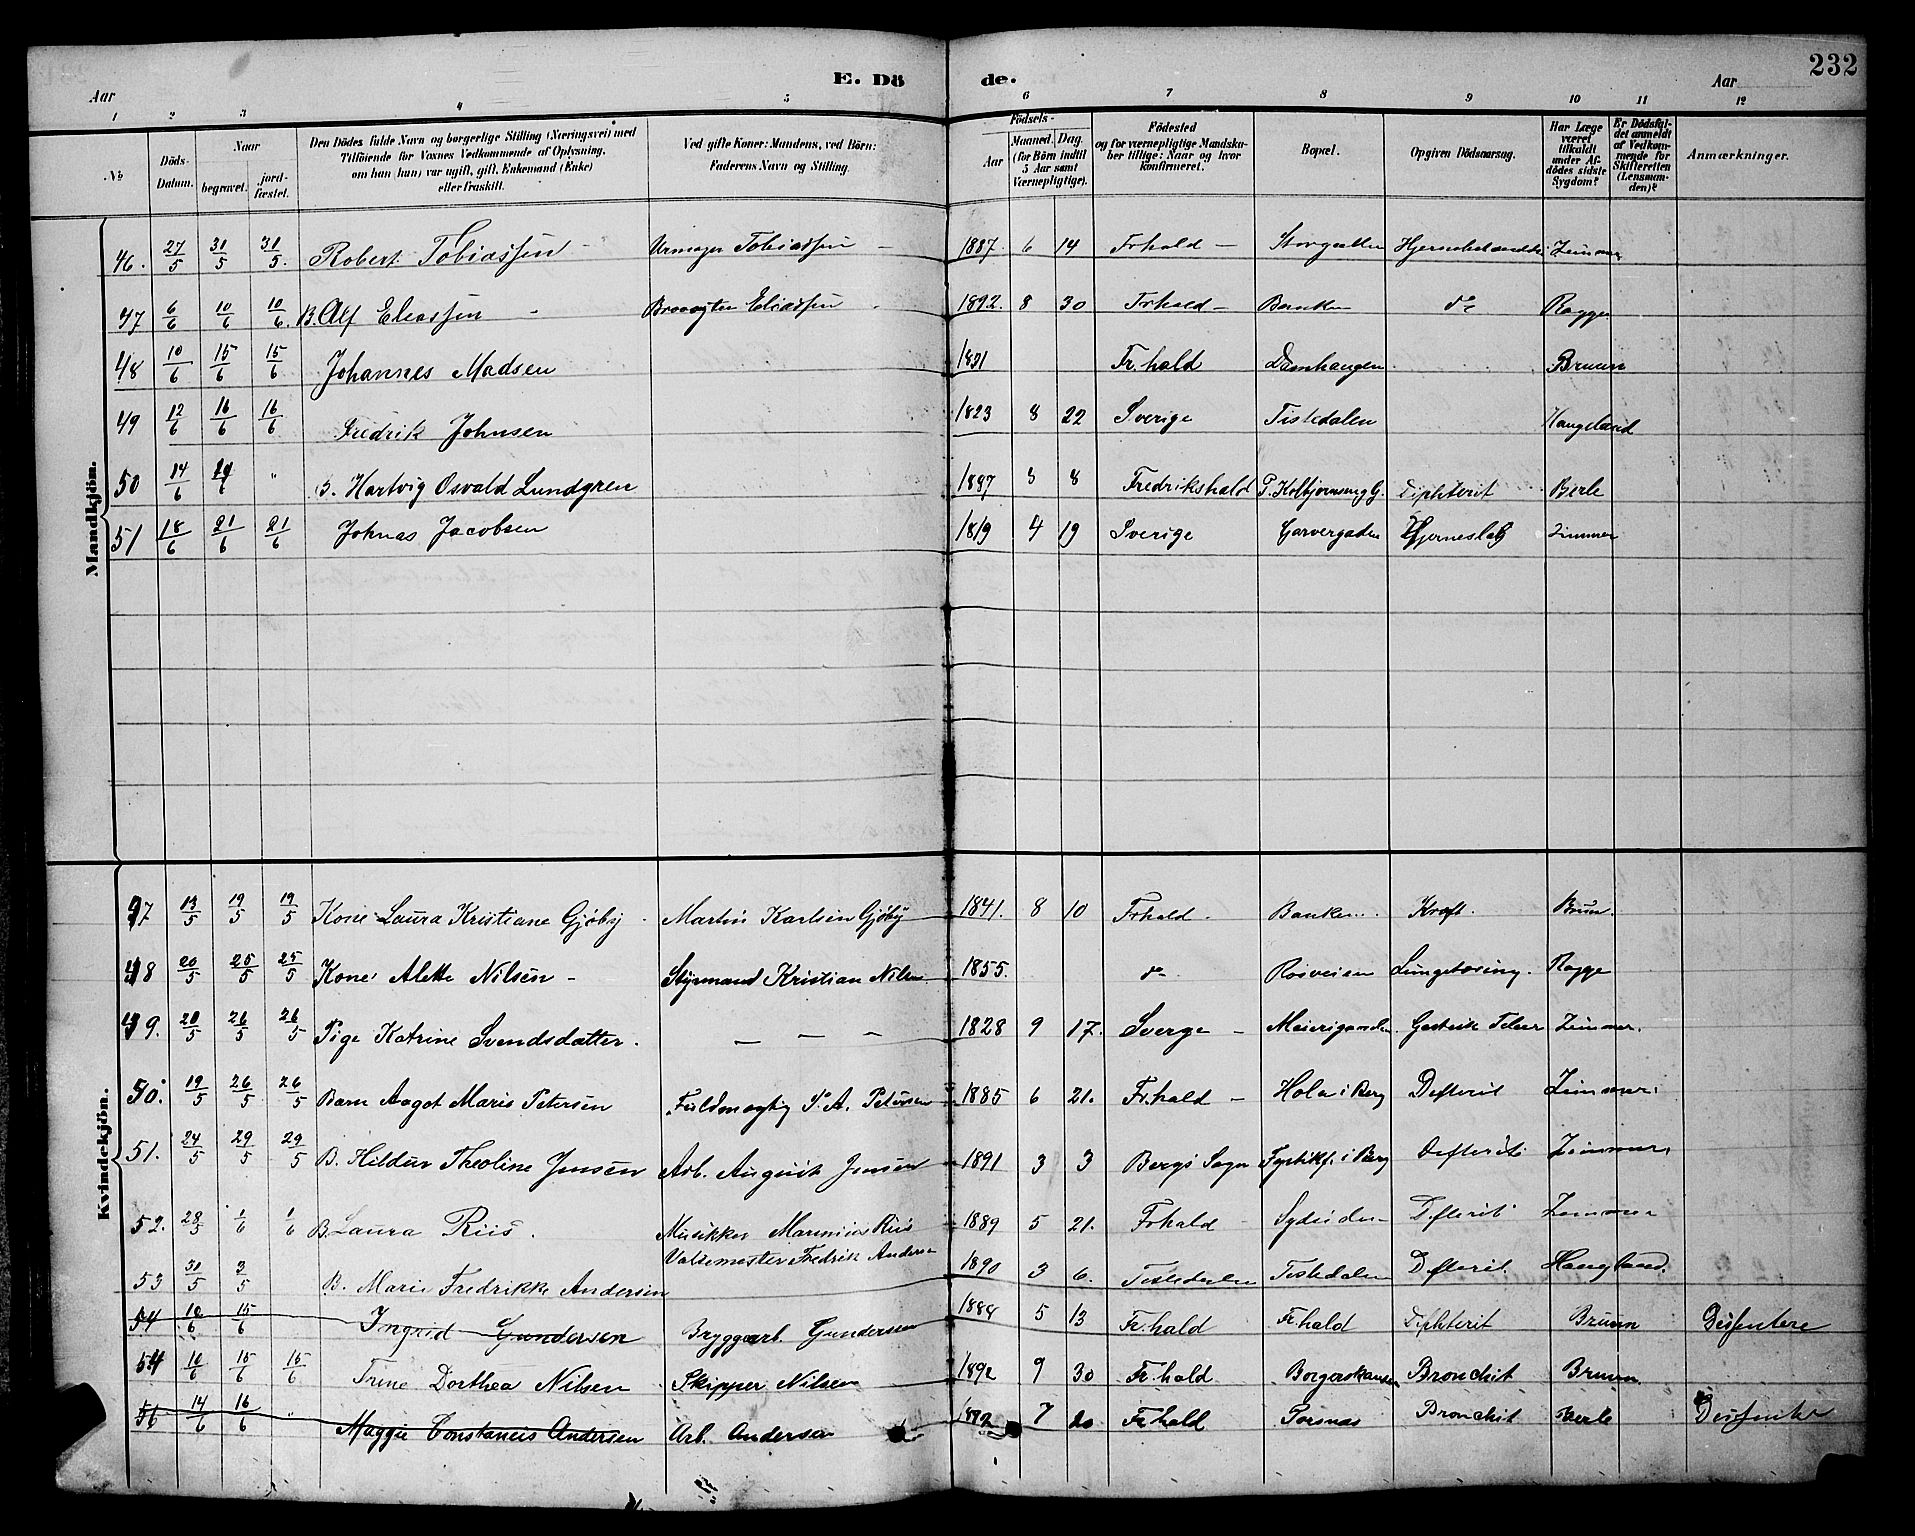 232
E. Dö de.
Aar Aar
1 2 3 4 5 6 7 8 9 10 11 12
No
Döds-Datum.
Naar
begravet.
jord-fæstet.
Den Dödes fulde Navn og borgerlige Stilling (Næringsvei) med
Tilföiende for Voxnes Vedkommende af Oplysning,
om han (hun) var ugift, gift, Enkemand (Enke)
eller fraskilt.
Ved gifte Koner: Mandens, ved Börn:
Faderens Navn og Stilling.
Födsels-
Aar
Maaned. Dag.
(for Börn indtil
5 Aar samt
Værnepligtige).
Födested
og for værnepligtige Mandska-
ber tillige: Naar og hvor
konfirmeret.
Bopæl.
Opgiven Dödsaarsag.
Har Læge
været
tilkaldt
under Af-
dödes sidste
Sygdom?
Er Dödsfal-
det anmeldt
af Vedkom-
mende for
Skifteretten
(Lensman-
den)?
Anmærkninger.
Mandkjön.
46. 27/5 30/5 30/5. Robert Tobiassen Urmager Tobiassen 1887. 6 14 Frhald Storgaden Zimmer
47 6/6 10/6 10/6. B. Alf Eliassen Eliassen 1892. 8 30 Frhald Banken do Rogge
48 10/6 15/6 15/6 Johannes Madsen 1821 Fr.hald Damhaugen Bruun
49 12/6 16/6 16/6 Fredrik Johnsen 1823 8 22 Sverige Tistedalen Haugeland
50 14/6 " B. Hartvig Osvald Lundgren 1887 3 8 Fredrikshald P. Kolbjörnsens G. Diphterit Berle
51 18/6 21/6 21/6 Johnas Jacobsen 1819 4 19 Sverige Garvergaden Hjerneslag Zimmer
Kvindekjön.
47 13/5 19/5 19/5 Kone Laura Kristiane Gjöby Martin Karlsen Gjöby 1841. 8 10 Frhald. Banken Kræft. Bruun.
48 20/5 25/5 25/5 Kone Alette Nilsen Styrmand Kristian Nilsen 1855. do Rosveien Rogge
49. 20/5 26/5 26/5 Pige Katrine Svendsdatter. — — — 1828 9 17. Sverge Gastrisk Feber Zimmer.
50. 19/5 26/5 26/5 Barn Aagot Marie Petersen Fuldmægtig P. A. Petersen 1885 6 21. Fr.hald Hola i Berg Defterit Zimmer
51. 24/5 29/5 29/5 B. Hildur Theoline Jensen Arb. August Jensen 1891 3 3 Bergs Sogn i Berg Defterit Zimmer
52. 28/5 1/6 1/6 B. Laura Riis. Musikker Marinius Riis 1889 5 21. Frhald Sydsiden Defterit Zimmer
53 30/5 3/5 B. Marie Fredrikke Andersen Valsemester Fredrik Andersen 1890 3 6. Tistedalen Tistedalen Defterit Haugland.
54 10/6 15/6 Ingrid Gundersen Bryggearb. Gundersen 1888 5 13 Fr.hald Frhald Diphterit Bruun
54 10/6 15/6 15/6 Trine Dorthea Nilsen Skipper Nilsen 1892 9 30 Fr.hald Borgerskansen Bronchit Bruun
56 14/6 16/6 " Maggie Constancis Andersen Arb. Andersen 1892 7 20 Frhald Torsnæs Bronchit Berle